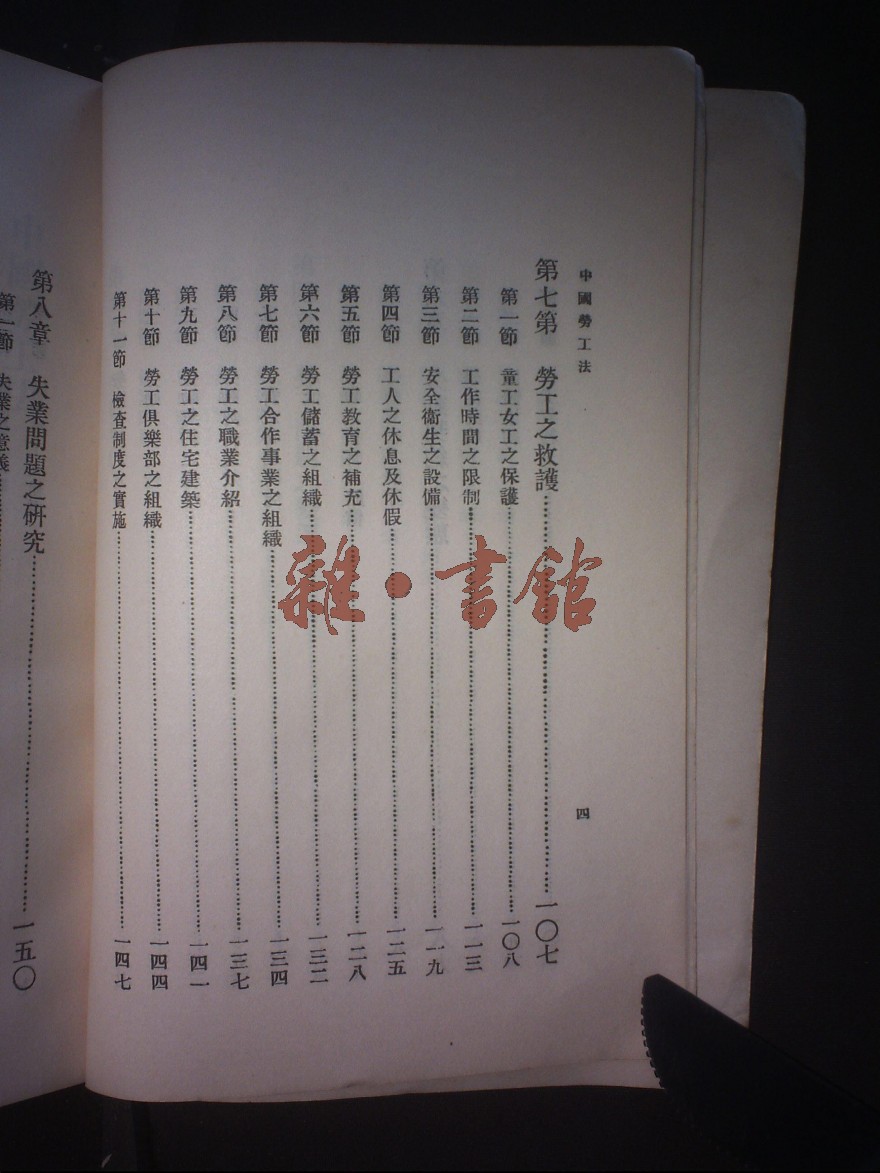 中國勞工法
四
第七第　勞工之救護……一〇七
第一節　童工女工之保護……一〇八
第二節　工作時間之限制……一一三
第三節　安全衞生之設備……一一九
第四節　工人之休息及休假……一二五
第五節　勞工教育之補充……一二八
第六節　勞工儲蓄之組織……一三二
第七節　勞工合作事業之組織……一三四
第八節　勞工之職業介紹……一三七
第九節　勞工之住宅建築……一四一
第十節　勞工俱樂部之組織……一四四
第十一節　檢查制度之實施……一四七
第八章　失業問題之研究……一五〇
第一節　失業之意義……
雜·書館